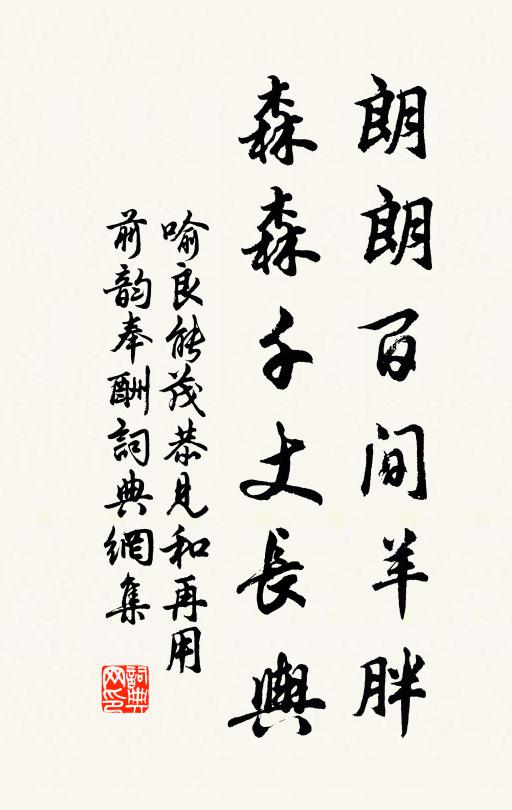 朗朗百間羊胖
森森千丈長輿
喻良能茂恭見和再用
前韵奉酬詞典網集
詞典网印